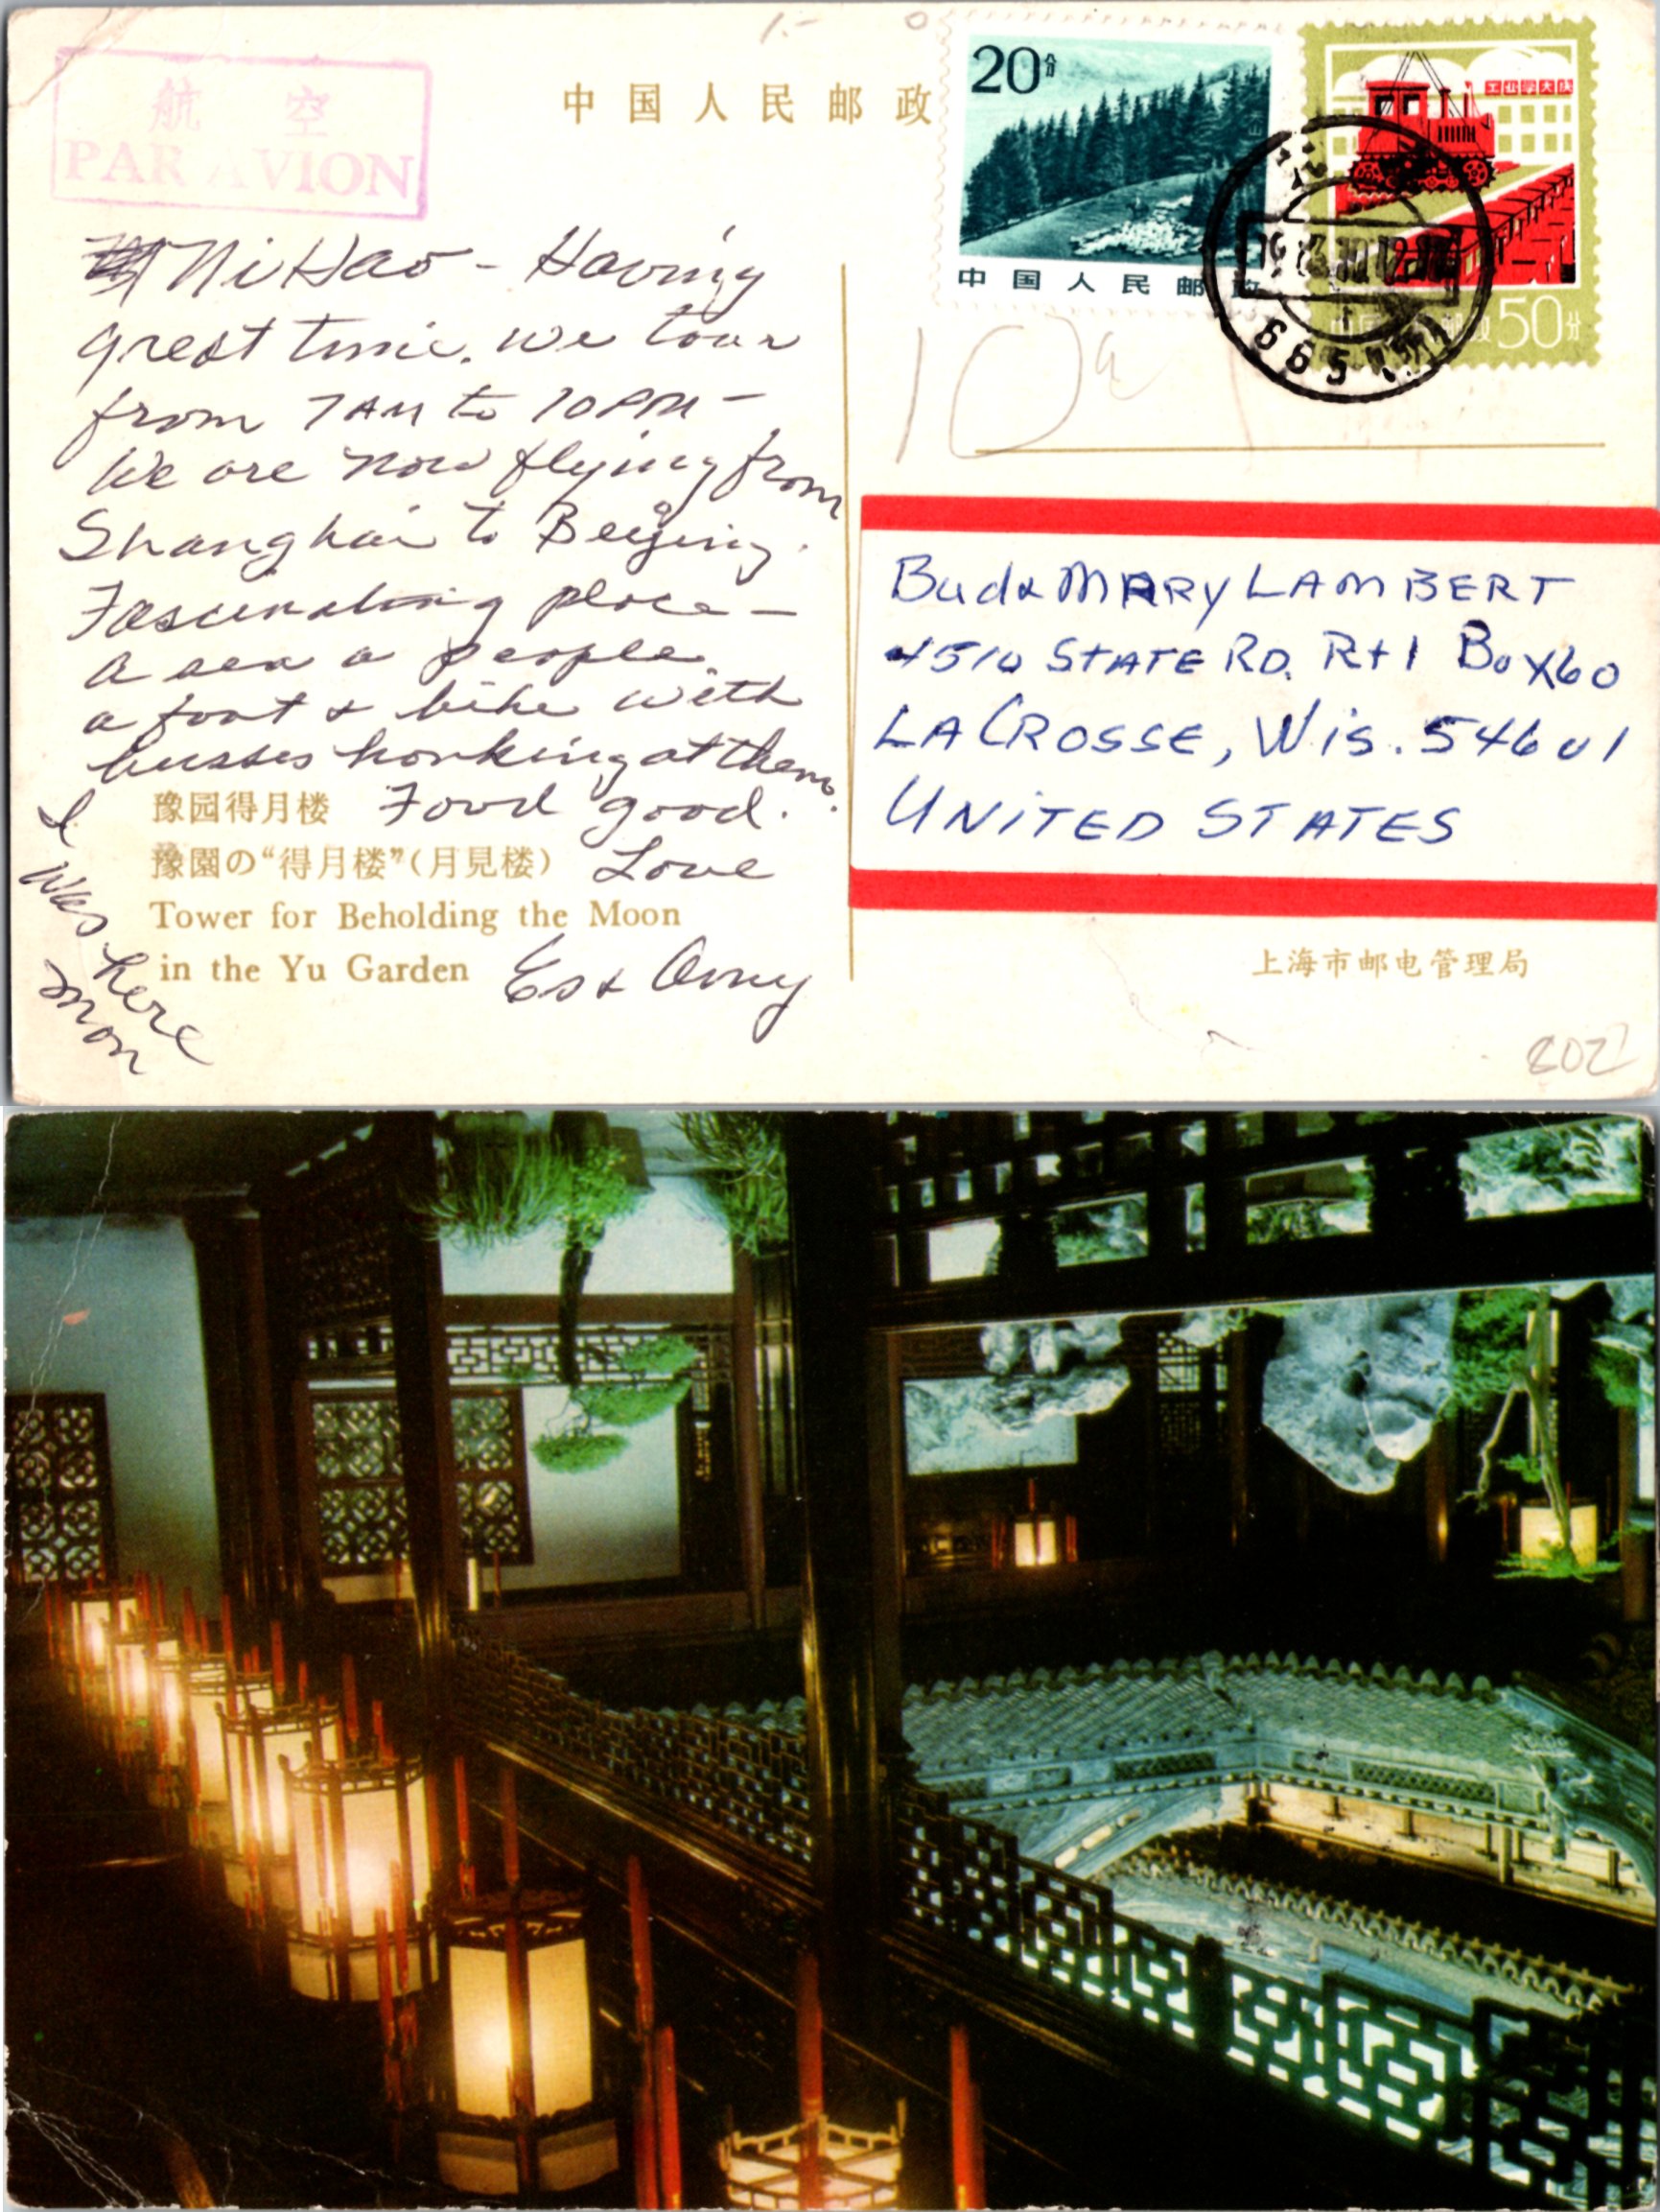 航空
PAR AVION
中国人民邮政
20分
中国人民邮政
工业学大庆
50分
Ni Hao - Having
great time. We tour
from 7AM to 10PM -
We are now flying from
Shanghai to Beijing.
Fascinating place -
a sea o people.
a foot & bike with
busses honking at them.
Food good.
Love
Es & Orny
I
was here
mon
豫园得月楼
豫園の“得月楼”(月見楼)
Tower for Beholding the Moon
in the Yu Garden
Bud & MARY LAMBERT
4510 STATE RD. Rt 1 Box 60
LACROSSE, Wis. 54601
UNITED STATES
上海市邮电管理局
802